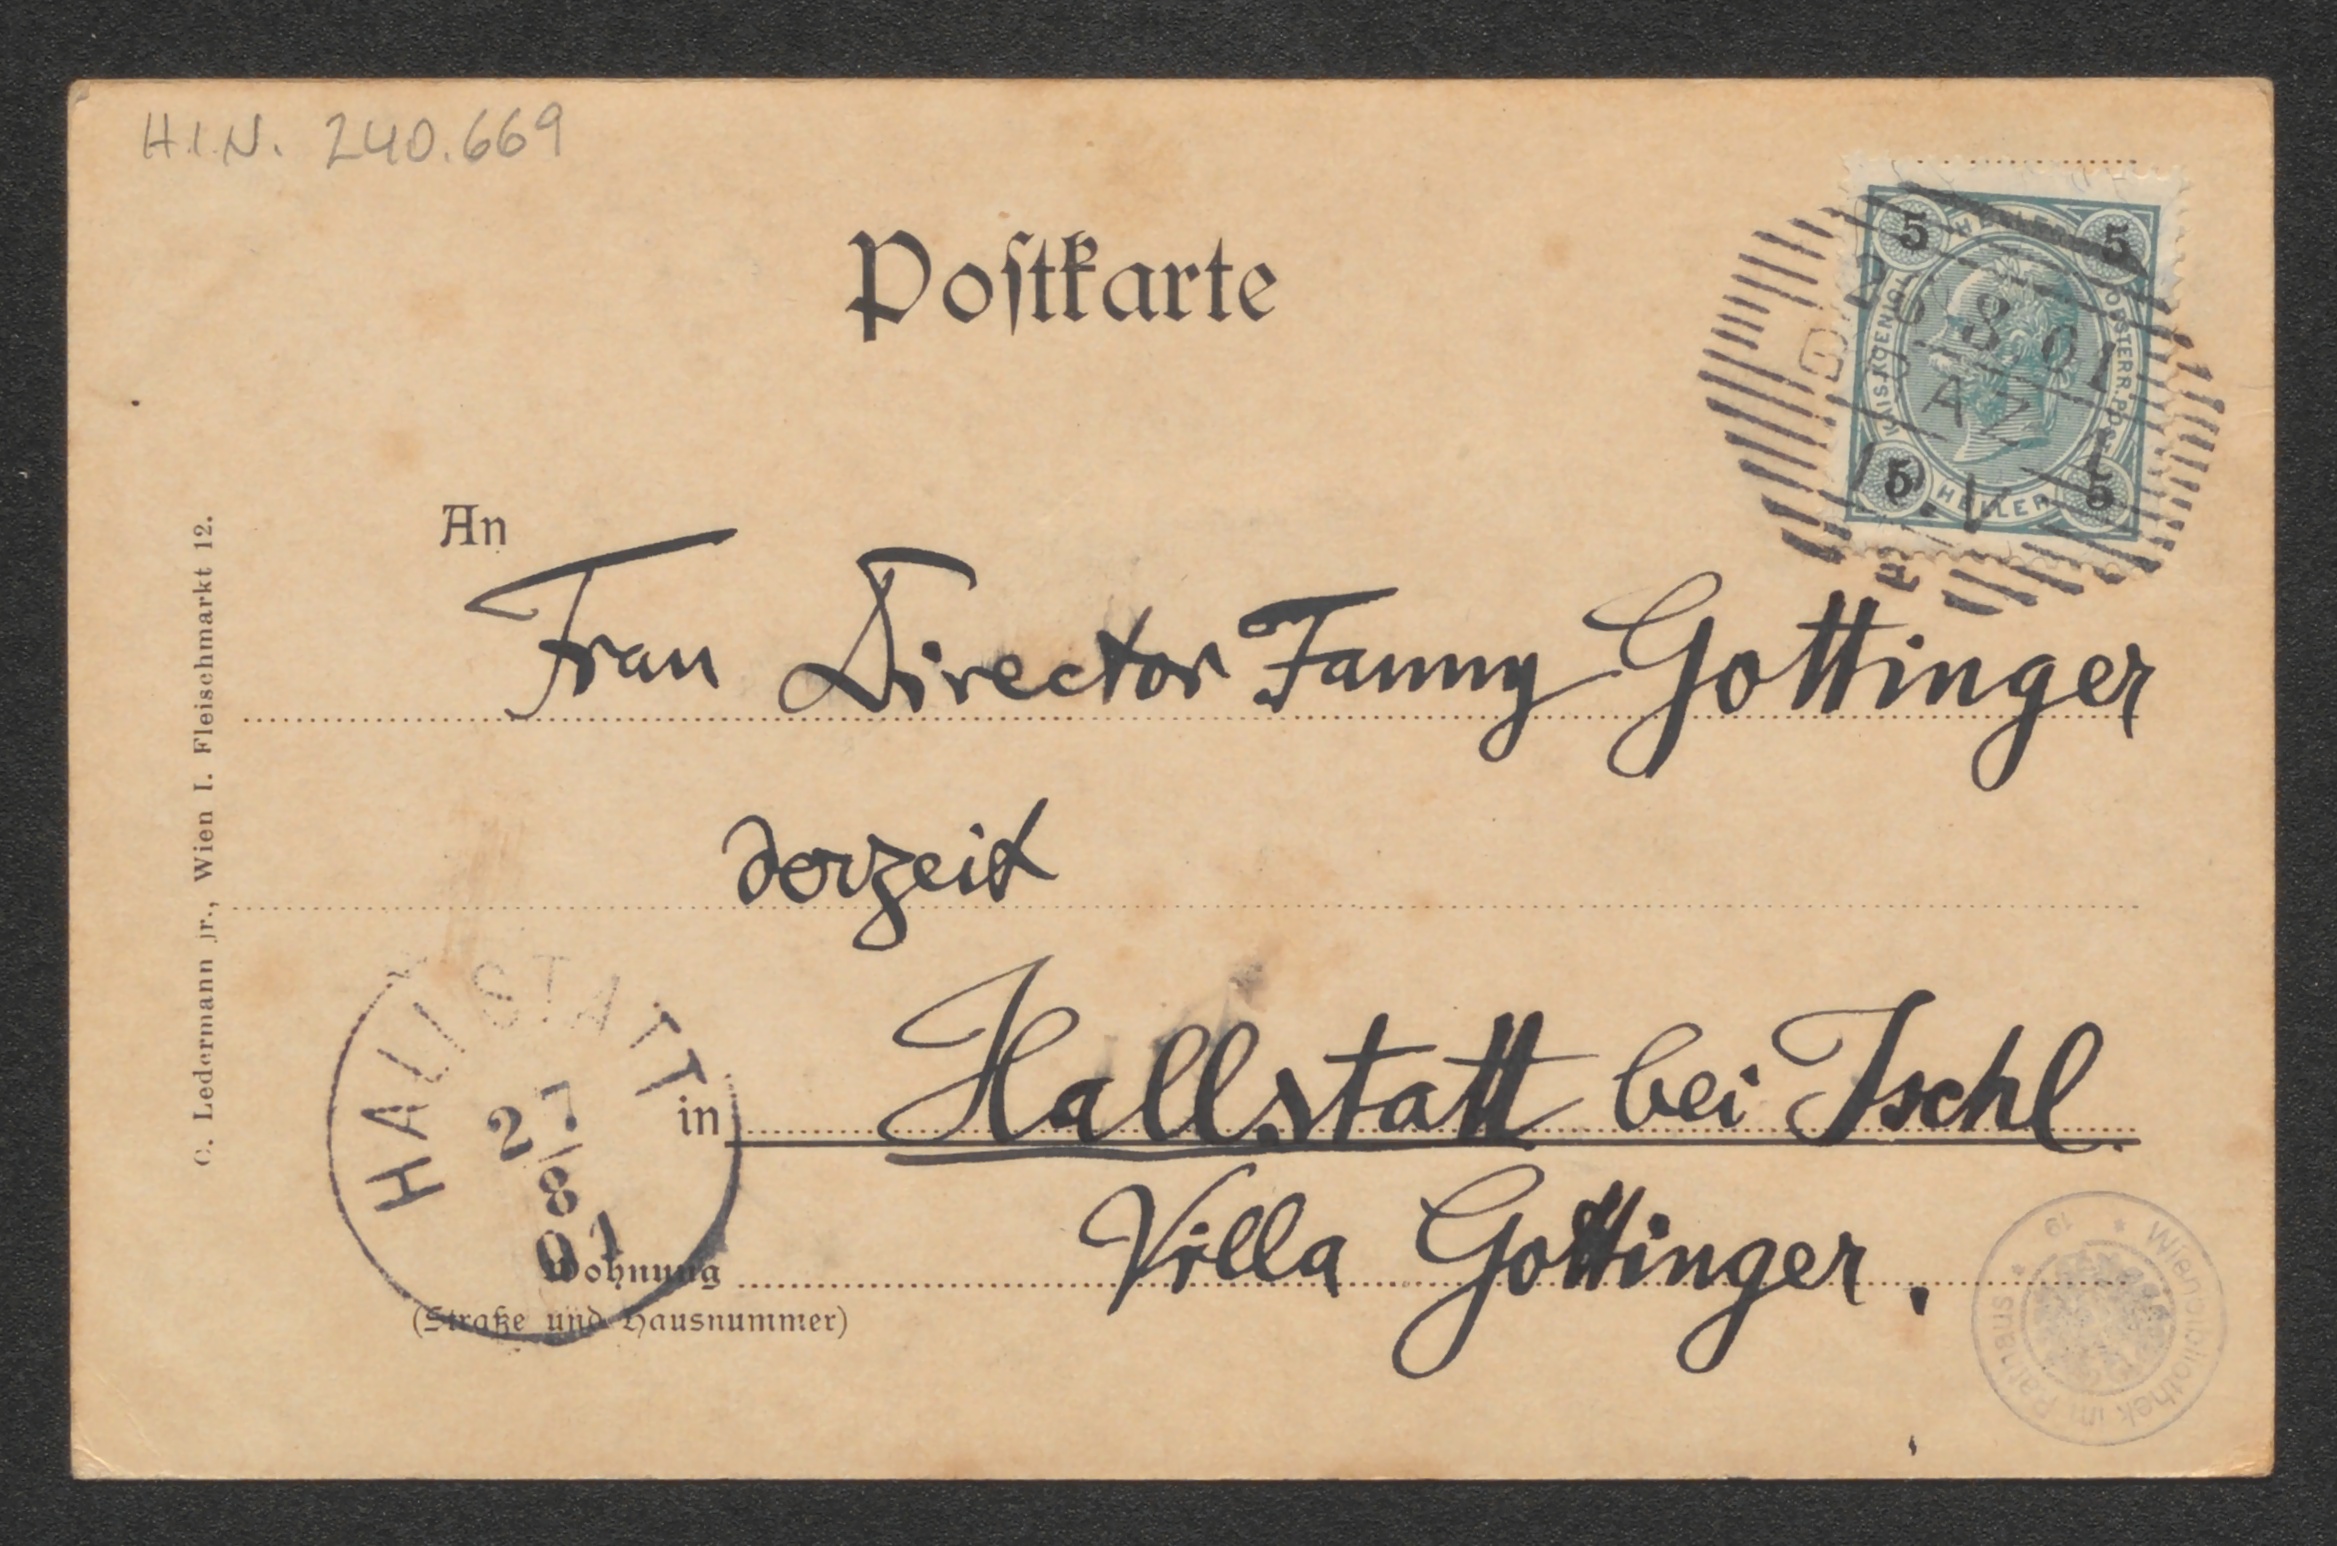 H.I.N. 240.669
Postkarte
5 HELLER 5
KAIS. KOENIGL. OESTERR. POST
5 HELLER 5
26 8 01
AZ
10. V
An
Frau Director Fanny Gottinger
derzeit
in Hallstatt bei Ischl
Villa Gottinger.
Wohnung
(Straße und Hausnummer)
C. Ledermann jr., Wien I. Fleischmarkt 12.
HALLSTATT
27
8
01
Wienbibliothek im Rathaus * 19 *